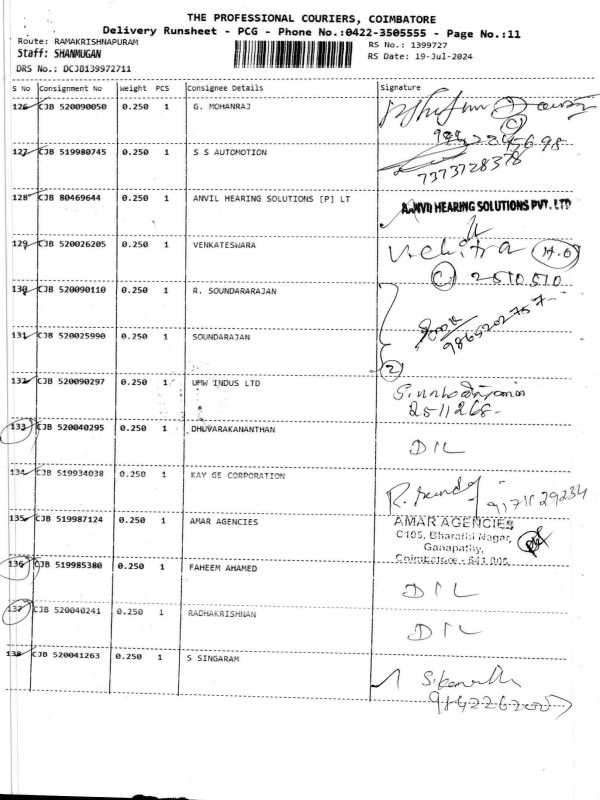 THE PROFESSIONAL COURIERS, COIMBATORE
Delivery Runsheet - PCG - Phone No.:0422-3505555 - Page No.:11
Route: RAMAKRISHNAPURAM
RS No.: 1399727
Staff: SHANMUGAN
RS Date: 19-Jul-2024
DRS No.: DCJB139972711
S No Consignment No Weight PCS Consignee Details Signature
126 CJB 520090050 0.250 1 G. MOHANRAJ
127 CJB 519980745 0.250 1 S S AUTOMOTION
7373728378
128 CJB 80469644 0.250 1 ANVIL HEARING SOLUTIONS [P] LT
HEARING SOLUTIONS PVT. LTD
129 CJB 520026205 0.250 1 VENKATESWARA
H.O
C 2510510
130 CJB 520090110 0.250 1 R. SOUNDARARAJAN
9865202757
131 CJB 520025990 0.250 1 SOUNDARAJAN
2
132 CJB 520090297 0.250 1 UMW INDUS LTD
2511268
133 CJB 520040295 0.250 1 DHUVARAKANANTHAN
DIL
134 CJB 519934038 0.250 1 KAY GE CORPORATION
135 CJB 519987124 0.250 1 AMAR AGENCIES
AMAR AGENCIES
C105, Bharathi Nagar,
Ganapathy,
Coimbatore - 641 006.
136 CJB 519985380 0.250 1 FAHEEM AHAMED
DIL
137 CJB 520040241 0.250 1 RADHAKRISHNAN
DIL
138 CJB 520041263 0.250 1 S SINGARAM